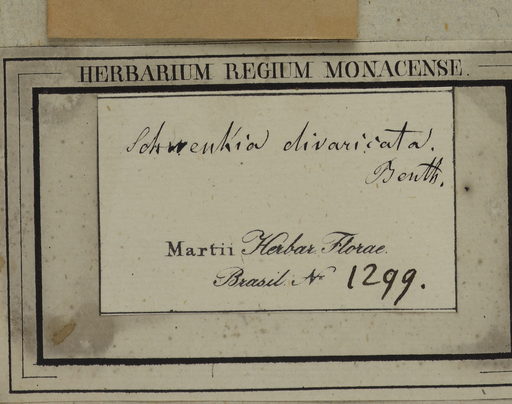 HERBARIUM REGIUM MONACENSE.
Schwenkia divaricata.
Benth.
Martii Herbar. Florae.
Brasil. No 1299.